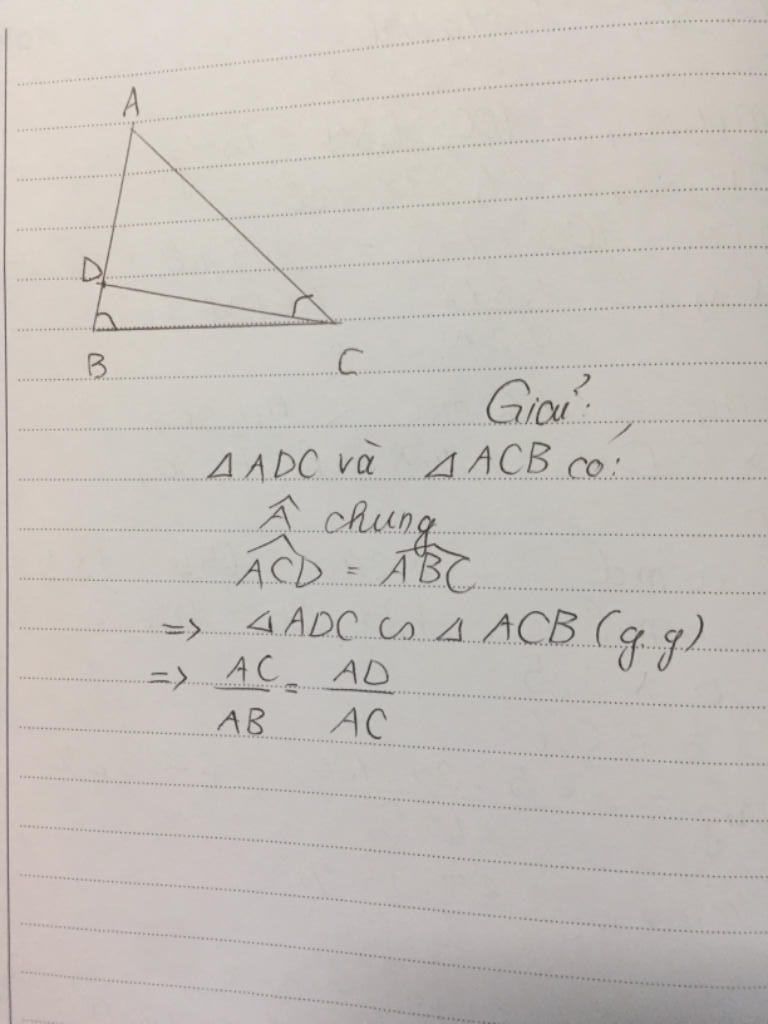 A
D
B
C
Giải:
△ADC và △ACB có:
Â chung
\widehat{ACD} = \widehat{ABC}
=> △ADC ∽ △ACB (g.g)
=> \frac{AC}{AB} = \frac{AD}{AC}